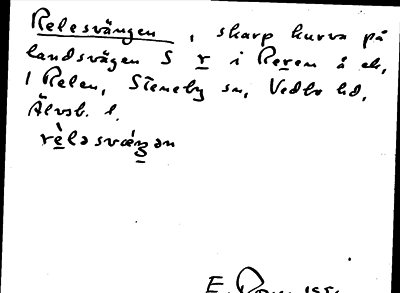 Relesvängen, skarp kurva på
landsvägen S r i Reren å ek,
1 Relen, Steneby sn, Vedbo hd,
Älvsb. l.
rèləsvæŋən
E.